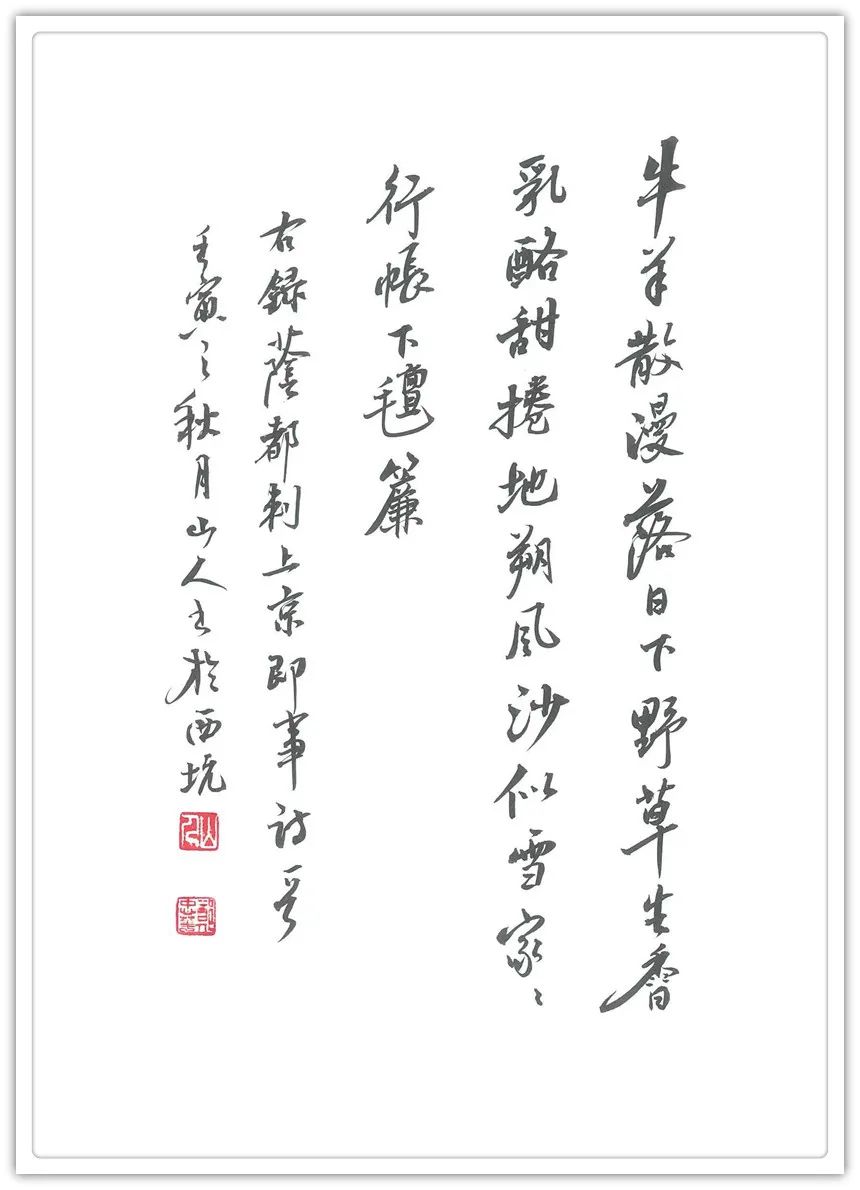 牛羊散漫落日下野草生香
乳酪甜捲地朔風沙似雪家〻
行帳下氊簾
右録蔭都剌上京即事詩一首
壬寅之秋月山人书於西坑
山人